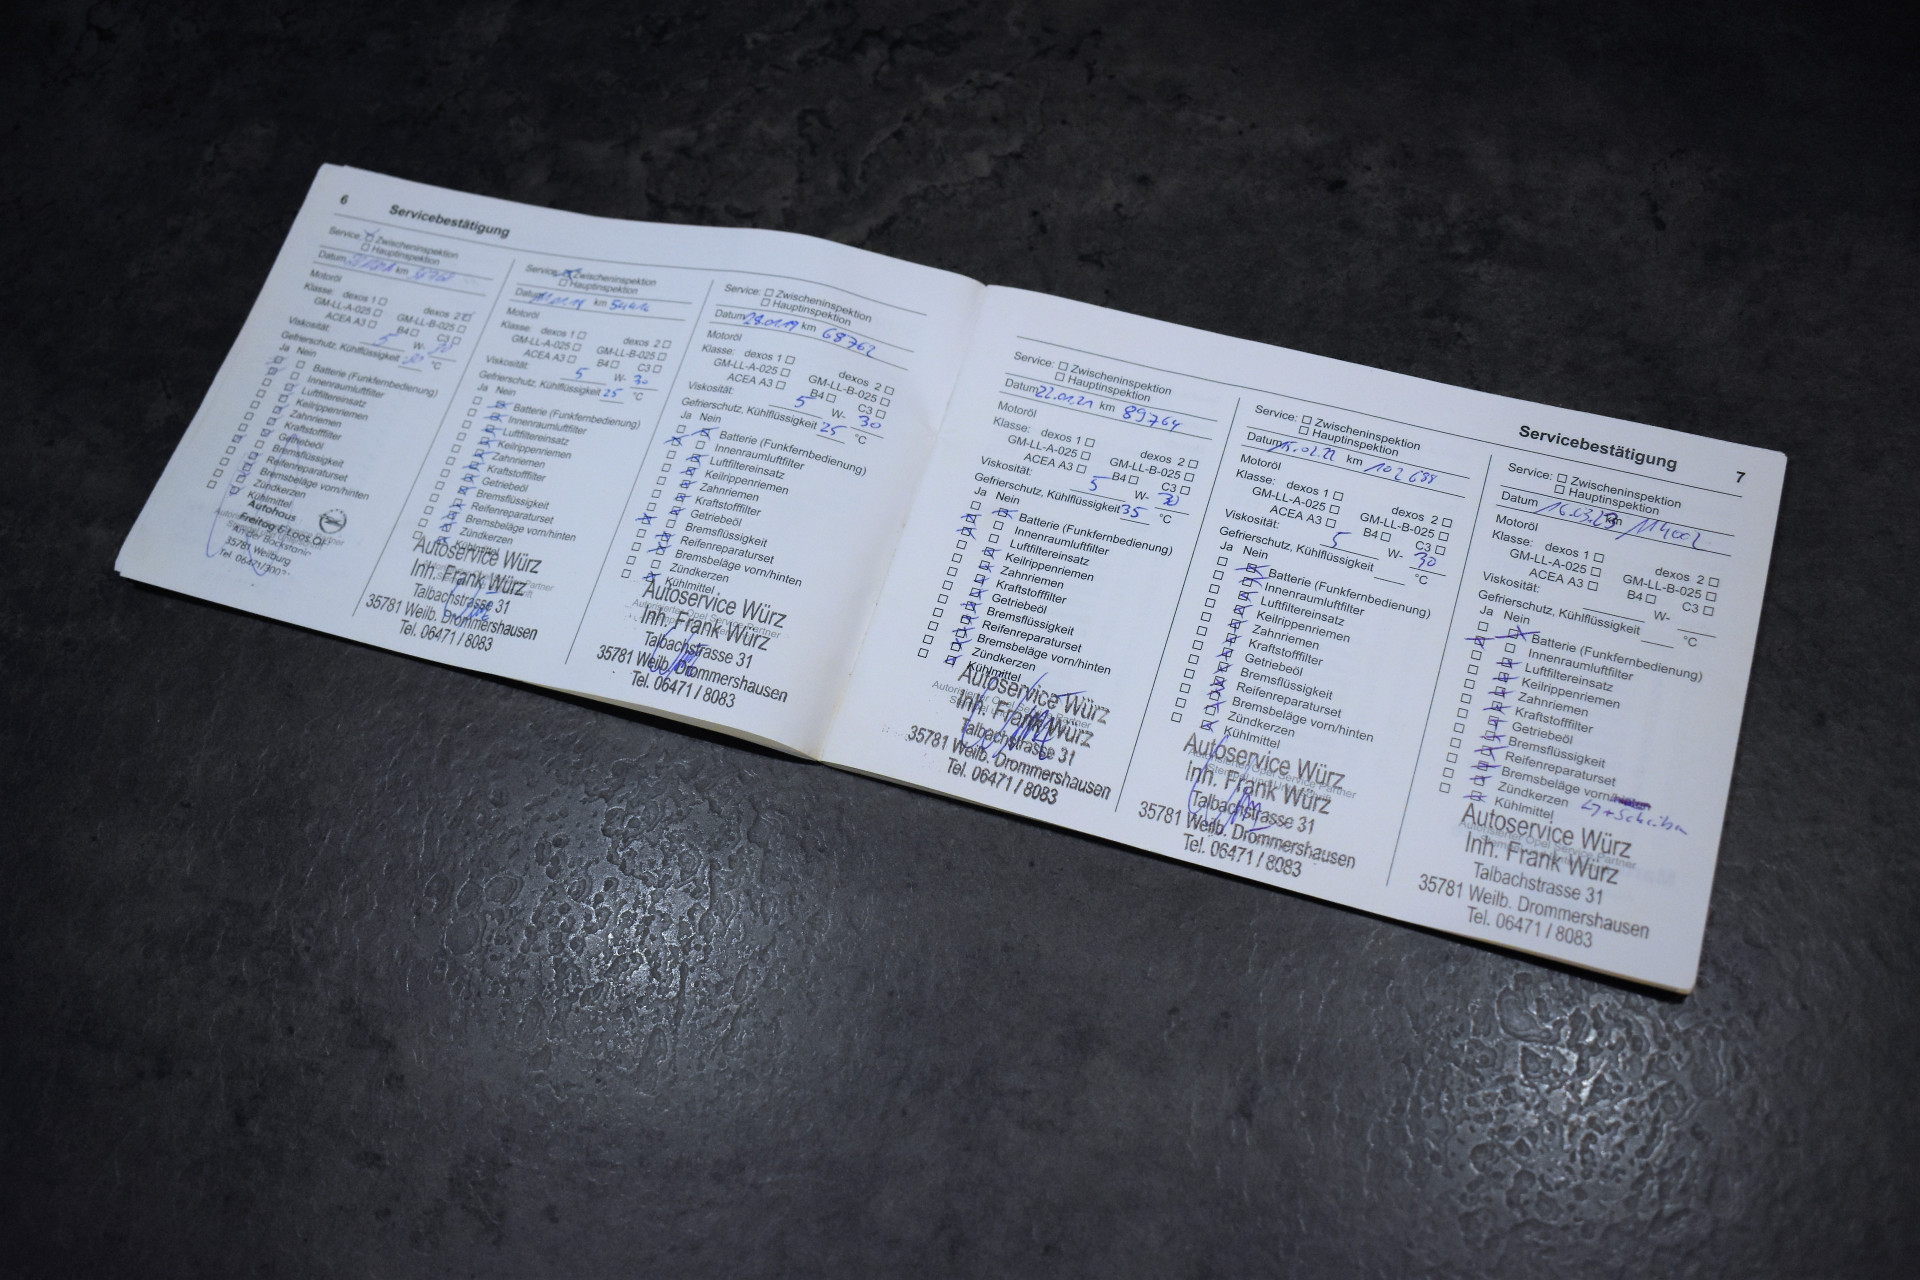 6 Servicebestätigung
Service: Zwischeninspektion
Hauptinspektion
Datum km
Motoröl
Klasse: dexos 1 dexos 2
GM-LL-A-025 GM-LL-B-025
ACEA A3 B4 C3
Viskosität: 5 W-
Gefrierschutz, Kühlflüssigkeit °C
Ja Nein
Batterie (Funkfernbedienung)
Innenraumluftfilter
Luftfiltereinsatz
Keilrippenriemen
Zahnriemen
Kraftstofffilter
Getriebeöl
Bremsflüssigkeit
Reifenreparaturset
Bremsbeläge vorn/hinten
Zündkerzen
Kühlmittel
Autohaus
35781 Weilburg
Service: Zwischeninspektion
Hauptinspektion
Datum km
Motoröl
Klasse: dexos 1 dexos 2
GM-LL-A-025 GM-LL-B-025
ACEA A3 B4 C3
Viskosität: 5 W- 30
Gefrierschutz, Kühlflüssigkeit 25 °C
Ja Nein
Batterie (Funkfernbedienung)
Innenraumluftfilter
Luftfiltereinsatz
Keilrippenriemen
Zahnriemen
Kraftstofffilter
Getriebeöl
Bremsflüssigkeit
Reifenreparaturset
Bremsbeläge vorn/hinten
Zündkerzen
Kühlmittel
Autoservice Würz
Inh. Frank Würz
Talbachstrasse 31
35781 Weilb. Drommershausen
Tel. 06471 / 8083
Service: Zwischeninspektion
Hauptinspektion
Datum 28.01.19 km 68762
Motoröl
Klasse: dexos 1 dexos 2
GM-LL-A-025 GM-LL-B-025
ACEA A3 B4 C3
Viskosität: 5 W- 30
Gefrierschutz, Kühlflüssigkeit 25 °C
Ja Nein
Batterie (Funkfernbedienung)
Innenraumluftfilter
Luftfiltereinsatz
Keilrippenriemen
Zahnriemen
Kraftstofffilter
Getriebeöl
Bremsflüssigkeit
Reifenreparaturset
Bremsbeläge vorn/hinten
Zündkerzen
Kühlmittel
Autoservice Würz
Inh. Frank Würz
Talbachstrasse 31
35781 Weilb. Drommershausen
Tel. 06471 / 8083
Servicebestätigung 7
Service: Zwischeninspektion
Hauptinspektion
Datum 22.01.21 km 89764
Motoröl
Klasse: dexos 1 dexos 2
GM-LL-A-025 GM-LL-B-025
ACEA A3 B4 C3
Viskosität: 5 W- 30
Gefrierschutz, Kühlflüssigkeit 35 °C
Ja Nein
Batterie (Funkfernbedienung)
Innenraumluftfilter
Luftfiltereinsatz
Keilrippenriemen
Zahnriemen
Kraftstofffilter
Getriebeöl
Bremsflüssigkeit
Reifenreparaturset
Bremsbeläge vorn/hinten
Zündkerzen
Kühlmittel
Autoservice Würz
Inh. Frank Würz
Talbachstrasse 31
35781 Weilb. Drommershausen
Tel. 06471 / 8083
Service: Zwischeninspektion
Hauptinspektion
Datum 15.02.22 km 102688
Motoröl
Klasse: dexos 1 dexos 2
GM-LL-A-025 GM-LL-B-025
ACEA A3 B4 C3
Viskosität: 5 W- 30
Gefrierschutz, Kühlflüssigkeit °C
Ja Nein
Batterie (Funkfernbedienung)
Innenraumluftfilter
Luftfiltereinsatz
Keilrippenriemen
Zahnriemen
Kraftstofffilter
Getriebeöl
Bremsflüssigkeit
Reifenreparaturset
Bremsbeläge vorn/hinten
Zündkerzen
Kühlmittel
Autoservice Würz
Inh. Frank Würz
Talbachstrasse 31
35781 Weilb. Drommershausen
Tel. 06471 / 8083
Service: Zwischeninspektion
Hauptinspektion
Datum 16.03.23 km 114002
Motoröl
Klasse: dexos 1 dexos 2
GM-LL-A-025 GM-LL-B-025
ACEA A3 B4 C3
Viskosität: W-
Gefrierschutz, Kühlflüssigkeit °C
Ja Nein
Batterie (Funkfernbedienung)
Innenraumluftfilter
Luftfiltereinsatz
Keilrippenriemen
Zahnriemen
Kraftstofffilter
Getriebeöl
Bremsflüssigkeit
Reifenreparaturset
Bremsbeläge vorn/hinten
Zündkerzen + Scheiben
Kühlmittel
Autoservice Würz
Inh. Frank Würz
Talbachstrasse 31
35781 Weilb. Drommershausen
Tel. 06471 / 8083